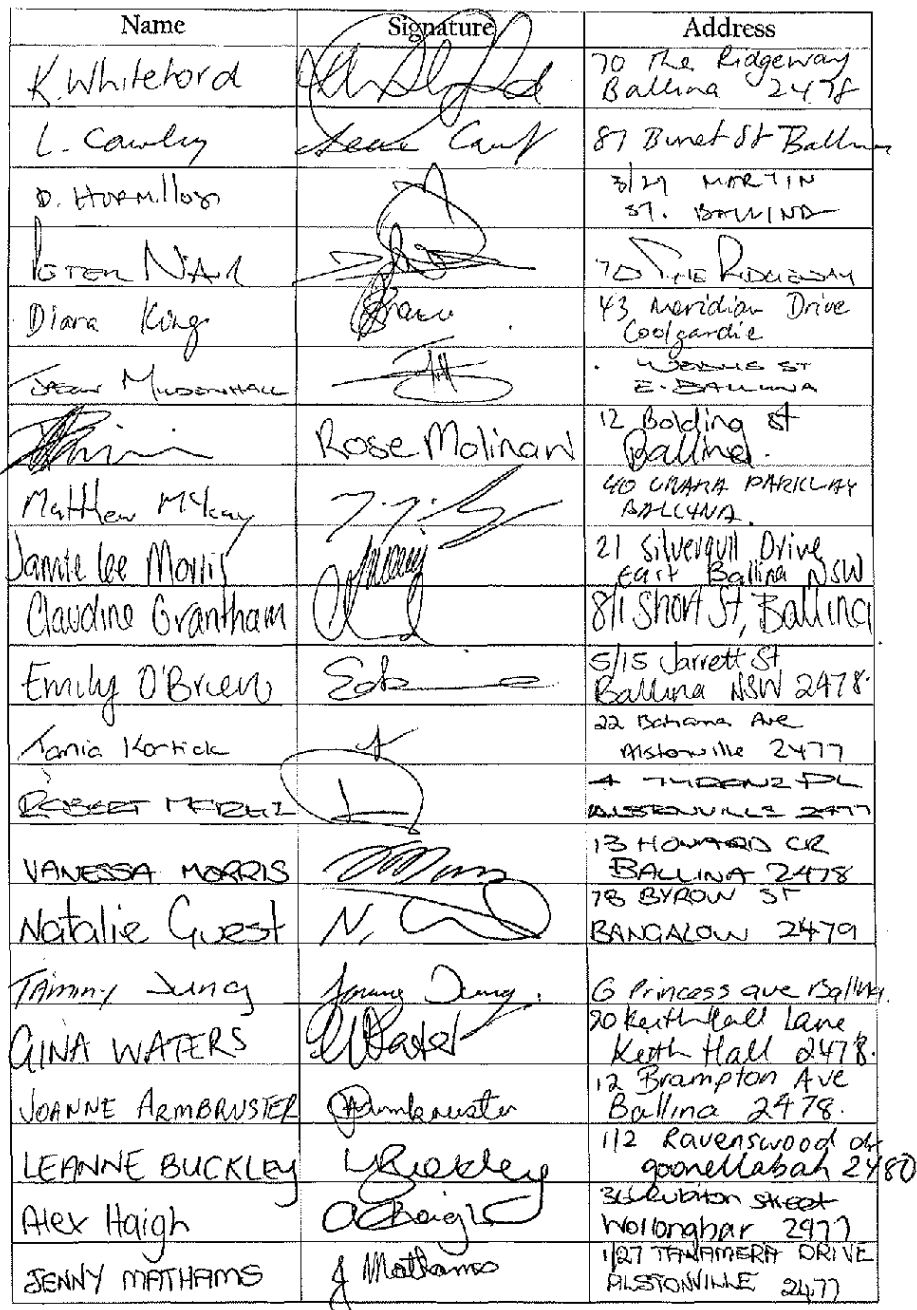 Name Signature Address
K. Whiteford 70 The Ridgeway
Ballina 2478
L. Cawley 87 Burnet St Ballina
D. 3/29 MARTIN
ST. BALLINA
PETER NAIR 70 THE RIDGEWAY
Diana King 43 Meridian Drive
Coolgardie
JASON MILDENHALL ST
E. BALLINA
Rose Molinari 12 Bolding st
Ballina.
Matthew McKay 40 UNARA PARKWAY
BALLINA.
Jamie lee Morris 21 Silvergull Drive
East Ballina NSW
Claudine Grantham 8/1 Short St, Ballina
Emily O'Brien 5/15 Jarrett St
Ballina NSW 2478.
Tania 22 Bahama Ave
Alstonville 2477
ROBERT 4 PL
ALSTONVILLE 2477
VANESSA MORRIS 13 HOWARD CR
BALLINA 2478
Natalie Guest N. 78 BYRON ST
BANGALOW 2479
TAmmy Jung Tammy Jung. 6 Princess ave Ballina.
GINA WATERS 90 Keith Hall Lane
Keith Hall 2478.
JOANNE ARMBRUSTER Armbruster 12 Brampton Ave
Ballina 2478.
LEANNE BUCKLEY LBuckley 1/2 Ravenswood dr
goonellabah 2480
Alex Haigh a Haigh street
Wollongbar 2477
JENNY MATHAMS J Mathams 1/27 TANAMERA DRIVE
ALSTONVILLE 2477